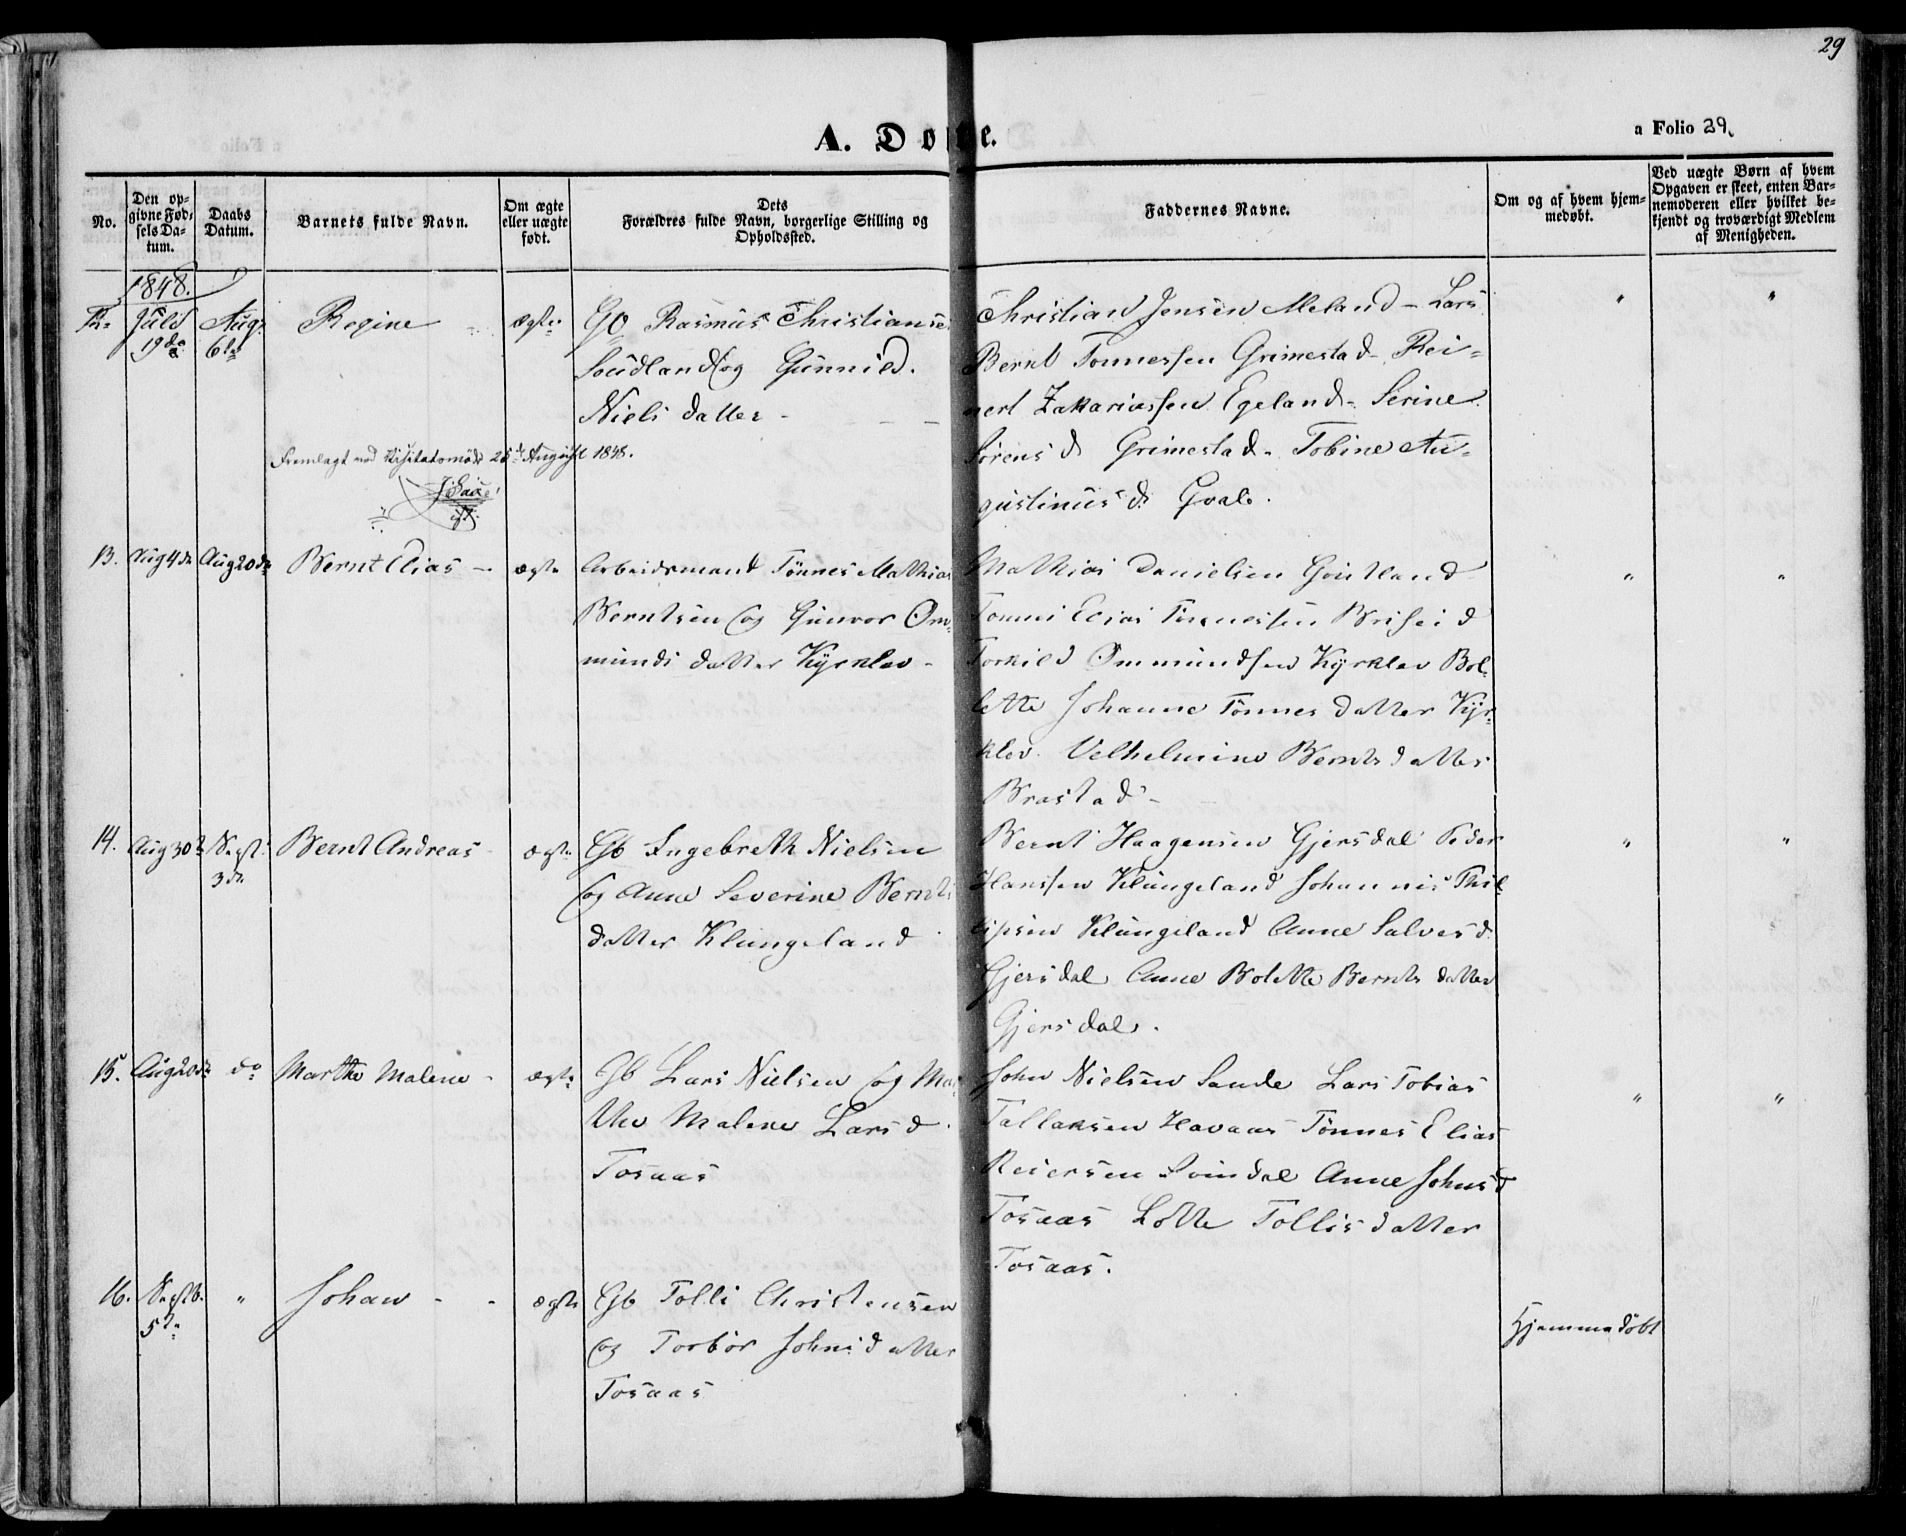 29
A. Døbte.
a Folio 29.
No.
Den op-
givne Fød-
sels Da-
tum.
Daabs
Datum.
Barnets fulde Navn.
Om ægte
eller uægte
født.
Dets
Forældres fulde Navn, borgerlige Stilling og
Opholdssted.
Faddernes Navne.
Om og af hvem hjem-
medøbt.
Ved uægte Børn af hvem
Opgaven er skeet, enten Bar-
nemoderen eller hvilket be-
kjendt og troværdigt Medlem
af Menigheden.
1848.
Juli
19de
Aug.
6te
Regine
ægte
Rasmus Christiansen
og Gunnild
Niels datter
Christian Jensen Meland - Lars
Bernt Tønnessen Grimestad - Rei-
nert Zakariassen Egeland - Serine
Sørens d Grimestad - Tobine Au-
gustinus d.
Fremlagt ved Visitatsmøde August 1848.
13.
Aug 4de
Aug 20de
Bernt Elias
ægte
Arbeidsmand Tønnes Mathias
Berntsen og Gunvor Om-
munds datter Kyrklev
Mathias Danielsen
Tønnes Elias Tønnessen Briseid
Torkild Ommundsen Kyrklev Bol-
lette Johanne Tønnes datter Kyr-
klev. Velhelmine Bernts datter
Brastad
14.
Aug 30te
Sept.
3de
Bernt Andreas
ægte
Gb Ingebreth Nielsen
og Anne Severine Bernts
datter Klungeland
Bernt Haagensen Gjersdal Peder
Hanssen Klungeland Johannes Phil-
lipsen Klungeland Anne Salves d.
Gjersdal Anne Bolette Bernts datter
Gjersdal.
15.
Aug 20de
do
Marthe Malene
ægte
Gb Lars Nielsen og Mar-
the Malene Lars d.
Tosaas
John Nielsen Sande Lars Tobias
Tallaksen Havaas Tønnes Elias
Reiersen Svindal Anne Johns d
Tosaas Lotte Tollis datter
Tosaas.
16.
Septb.
5te
"
Johan
ægte
Gb Tolli Christensen
og Torbør Johns datter
Tosaas
Hjemmedøbt